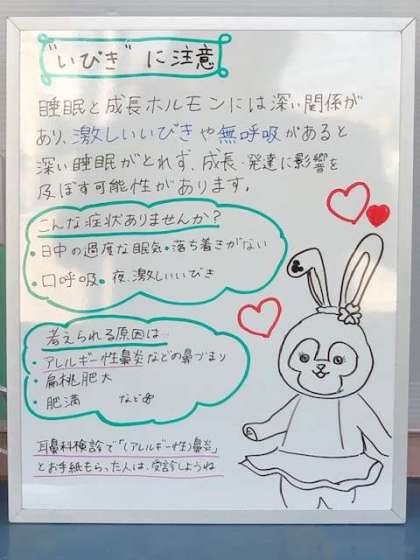 "いびき"に注意
睡眠と成長ホルモンには深い関係が
あり、激しいいびきや無呼吸があると
深い睡眠がとれず、成長・発達に影響を
及ぼす可能性があります。
こんな症状ありませんか?
・日中の過度な眠気・落ち着きがない
・口呼吸・夜、激しいいびき
考えられる原因は…
・アレルギー性鼻炎などの鼻づまり
・扁桃肥大
・肥満 など
耳鼻科検診で「(アレルギー性)鼻炎」
とお手紙もらった人は、受診しようね